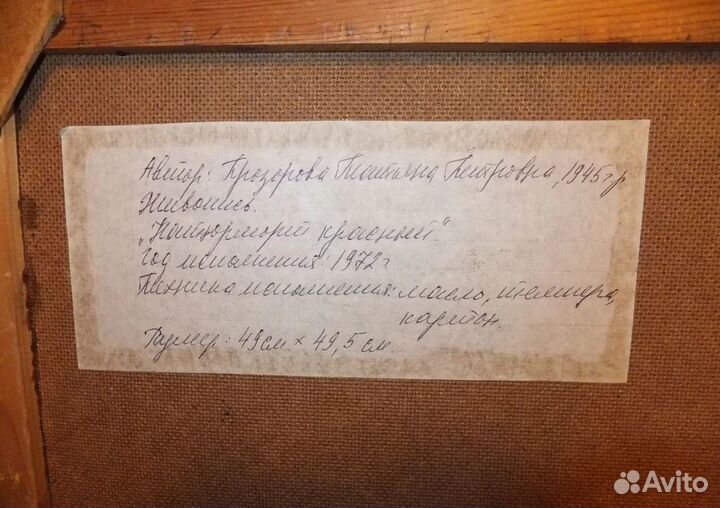 Автор: Прозорова Татьяна Петровна, 1945 г.р
Живопись.
„Натюрморт красный".
Год исполнения: 1972 г
Техника исполнения: масло, темпера,
картон.
Размер: 49 см × 49,5 см.
Avito